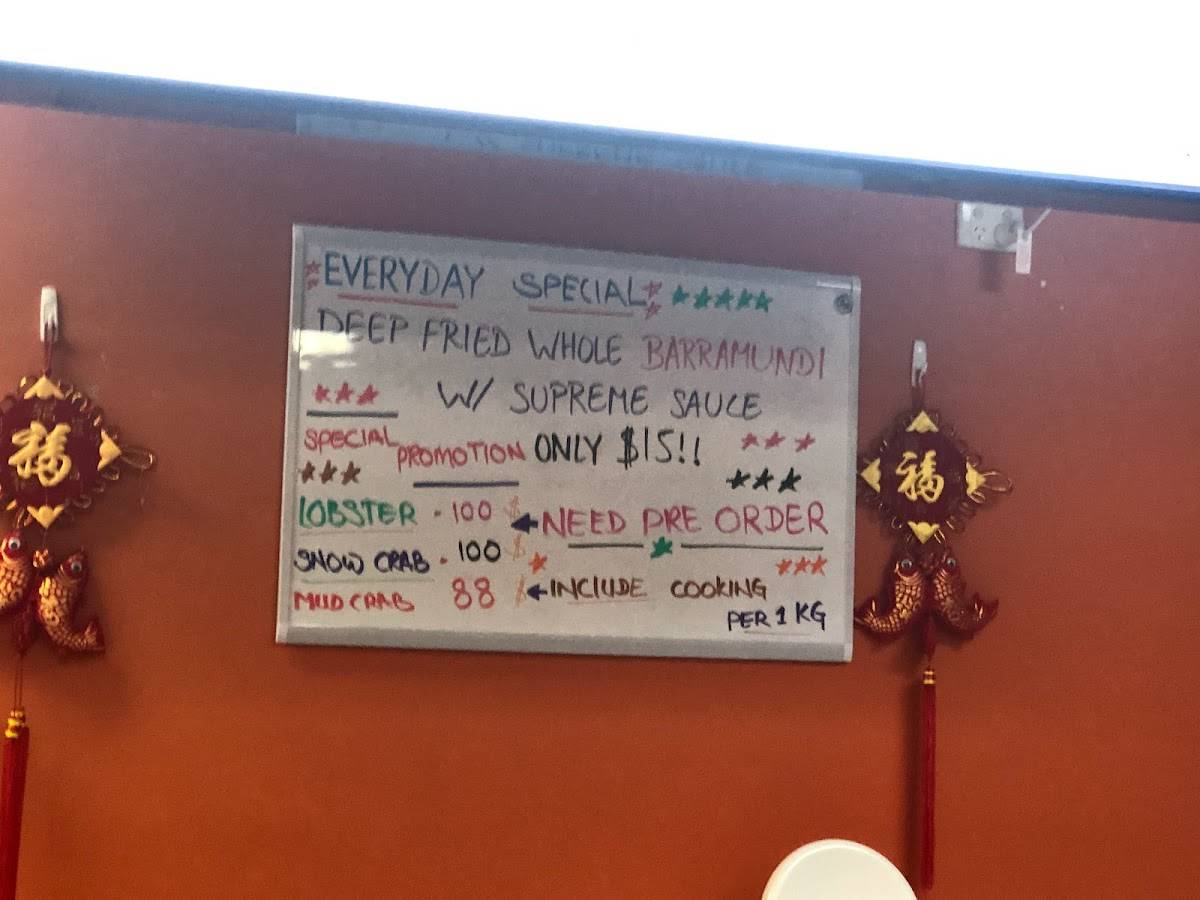 EVERYDAY SPECIAL
DEEP FRIED WHOLE BARRAMUNDI
W/ SUPREME SAUCE
SPECIAL PROMOTION ONLY $15!!
LOBSTER - 100 $ NEED PRE ORDER
SNOW CRAB - 100 $
MUD CRAB 88 $ INCLUDE COOKING
PER 1 KG
福
福